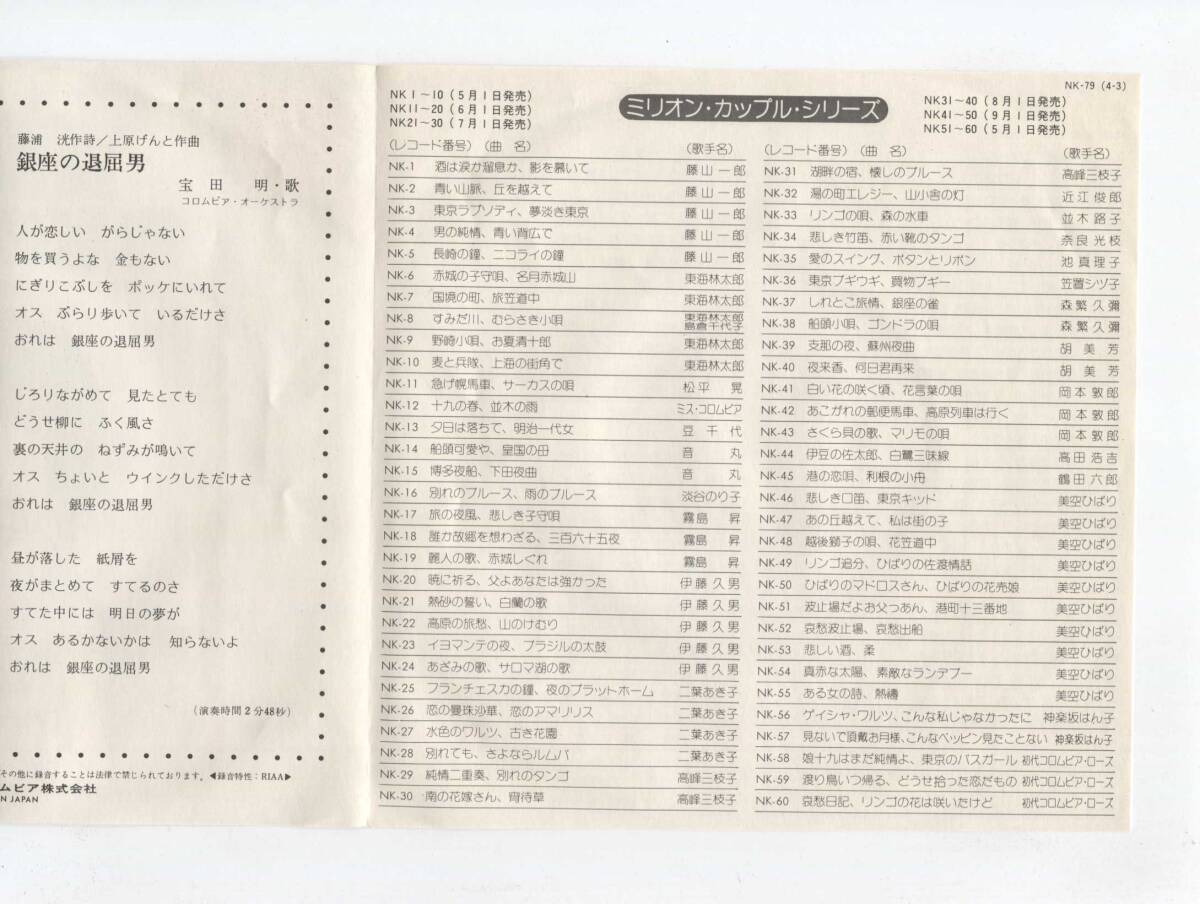 藤浦 洸作詩/上原げんと作曲
銀座の退屈男
宝田 明・歌
コロムビア・オーケストラ
人が恋しい がらじゃない
物を買うよな 金もない
にぎりこぶしを ポッケにいれて
オス ぶらり歩いて いるだけさ
おれは 銀座の退屈男
じろりながめて 見たとても
どうせ柳に ふく風さ
裏の天井の ねずみが鳴いて
オス ちょいと ウインクしただけさ
おれは 銀座の退屈男
昼が落した 紙屑を
夜がまとめて すてるのさ
すてた中には 明日の夢が
オス あるかないかは 知らないよ
おれは 銀座の退屈男
(演奏時間2分48秒)
その他に録音することは法律で禁じられております。◀録音特性:RIAA▶
ムビア株式会社
N JAPAN
NK-79 (4-3)
NK1~10(5月1日発売)
NK11~20(6月1日発売)
NK21~30(7月1日発売)
ミリオン・カップル・シリーズ
NK31~40(8月1日発売)
NK41~50(9月1日発売)
NK51~60(5月1日発売)
(レコード番号)(曲 名) (歌手名)
NK-1 酒は涙か溜息か、影を慕いて 藤山一郎
NK-2 青い山脈、丘を越えて 藤山一郎
NK-3 東京ラプソディ、夢淡き東京 藤山一郎
NK-4 男の純情、青い背広で 藤山一郎
NK-5 長崎の鐘、ニコライの鐘 藤山一郎
NK-6 赤城の子守唄、名月赤城山 東海林太郎
NK-7 国境の町、旅笠道中 東海林太郎
NK-8 すみだ川、むらさき小唄 東海林太郎 島倉千代子
NK-9 野崎小唄、お夏清十郎 東海林太郎
NK-10 麦と兵隊、上海の街角で 東海林太郎
NK-11 急げ幌馬車、サーカスの唄 松平 晃
NK-12 十九の春、並木の雨 ミス・コロムビア
NK-13 夕日は落ちて、明治一代女 豆千代
NK-14 船頭可愛や、皇国の母 音丸
NK-15 博多夜船、下田夜曲 音丸
NK-16 別れのブルース、雨のブルース 淡谷のり子
NK-17 旅の夜風、悲しき子守唄 霧島 昇
NK-18 誰か故郷を想わざる、三百六十五夜 霧島 昇
NK-19 麗人の歌、赤城しぐれ 霧島 昇
NK-20 暁に祈る、父よあなたは強かった 伊藤久男
NK-21 熱砂の誓い、白蘭の歌 伊藤久男
NK-22 高原の旅愁、山のけむり 伊藤久男
NK-23 イヨマンテの夜、ブラジルの太鼓 伊藤久男
NK-24 あざみの歌、サロマ湖の歌 伊藤久男
NK-25 フランチェスカの鐘、夜のプラットホーム 二葉あき子
NK-26 恋の曼珠沙華、恋のアマリリス 二葉あき子
NK-27 水色のワルツ、古き花園 二葉あき子
NK-28 別れても、さよならルムバ 二葉あき子
NK-29 純情二重奏、別れのタンゴ 高峰三枝子
NK-30 南の花嫁さん、宵待草 高峰三枝子
(レコード番号)(曲 名) (歌手名)
NK-31 湖畔の宿、懐しのブルース 高峰三枝子
NK-32 湯の町エレジー、山小舎の灯 近江俊郎
NK-33 リンゴの唄、森の水車 並木路子
NK-34 悲しき竹笛、赤い靴のタンゴ 奈良光枝
NK-35 愛のスイング、ボタンとリボン 池真理子
NK-36 東京ブギウギ、買物ブギー 笠置シヅ子
NK-37 しれとこ旅情、銀座の雀 森繁久彌
NK-38 船頭小唄、ゴンドラの唄 森繁久彌
NK-39 支那の夜、蘇州夜曲 胡美芳
NK-40 夜来香、何日君再来 胡美芳
NK-41 白い花の咲く頃、花言葉の唄 岡本敦郎
NK-42 あこがれの郵便馬車、高原列車は行く 岡本敦郎
NK-43 さくら貝の歌、マリモの唄 岡本敦郎
NK-44 伊豆の佐太郎、白鷺三味線 高田浩吉
NK-45 港の恋唄、利根の小舟 鶴田六郎
NK-46 悲しき口笛、東京キッド 美空ひばり
NK-47 あの丘越えて、私は街の子 美空ひばり
NK-48 越後獅子の唄、花笠道中 美空ひばり
NK-49 リンゴ追分、ひばりの佐渡情話 美空ひばり
NK-50 ひばりのマドロスさん、ひばりの花売娘 美空ひばり
NK-51 波止場だよお父つあん、港町十三番地 美空ひばり
NK-52 哀愁波止場、哀愁出船 美空ひばり
NK-53 悲しい酒、柔 美空ひばり
NK-54 真赤な太陽、素敵なランデブー 美空ひばり
NK-55 ある女の詩、熱禱 美空ひばり
NK-56 ゲイシャ・ワルツ、こんな私じゃなかったに 神楽坂はん子
NK-57 見ないで頂戴お月様、こんなベッピン見たことない 神楽坂はん子
NK-58 娘十九はまだ純情よ、東京のバスガール 初代コロムビア・ローズ
NK-59 渡り鳥いつ帰る、どうせ拾った恋だもの 初代コロムビア・ローズ
NK-60 哀愁日記、リンゴの花は咲いたけど 初代コロムビア・ローズ